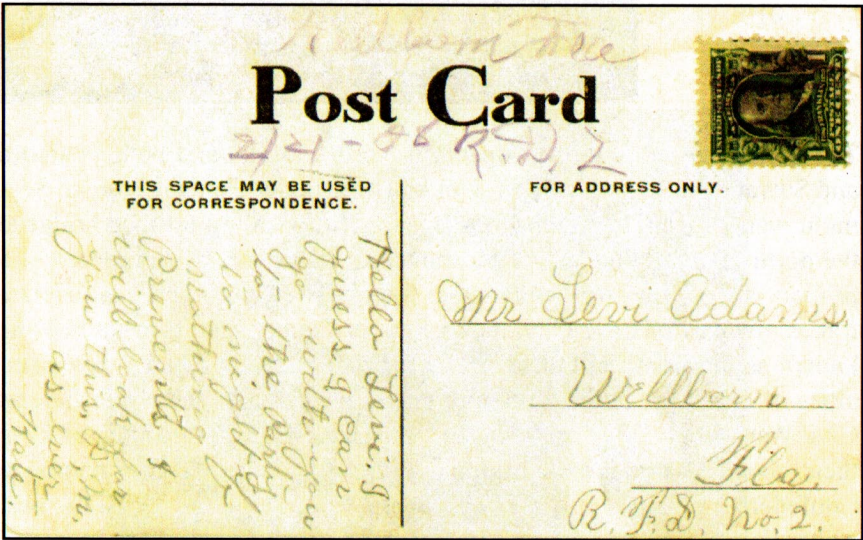 Wellborn Fla
Post Card
2/21-08 R.D. 2
THIS SPACE MAY BE USED
FOR CORRESPONDENCE.
FOR ADDRESS ONLY.
Hello Levi. I
guess I can
go with you
to the Party
to night if
nothing
Prevents I
will look for
you this, P.M.
as ever
Kate.
Mr Levi Adams,
Wellborn
Fla.
R.F.D. No. 2.
1 1